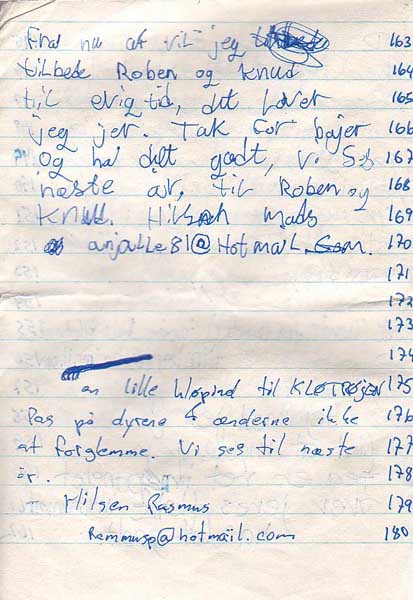 Fra nu af vil jeg 163
tilbede Roben og Knud 164
til evig tid, det lover 165
jeg jer. Tak for bajer 166
og ha' det godt, vi Ses 167
næste år, til Roben og 168
Knud. Hilsen Mads 169
anjoulle81@Hotmail.Com. 170
171
172
173
174
en lille til KLØTRØJEN 175
Pas på dyrene & ænderne ikke 176
at forglemme. Vi ses til næste 177
år. 178
Hilsen Rasmus 179
Remmusp@hotmail.com 180